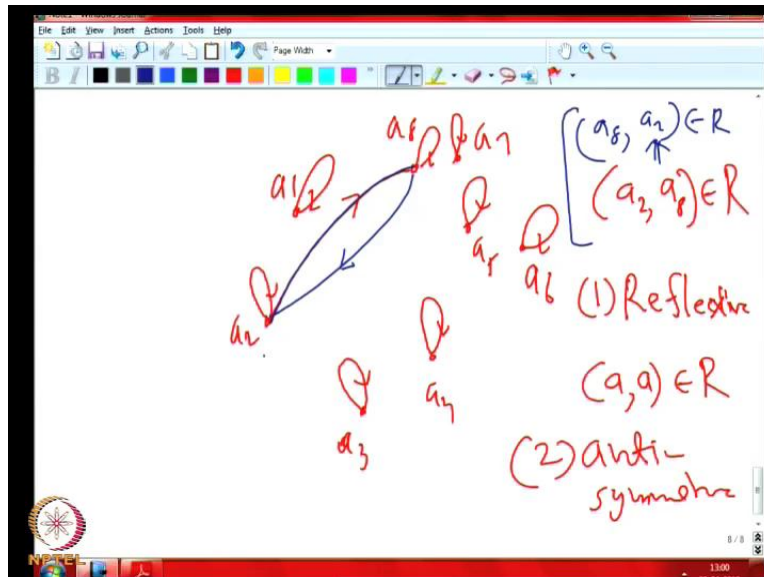 File Edit View Insert Actions Tools Help
Page Width
B I
a8 a7
a1
a5
a6
a2
a4
a3
(a8, a2) ∈ R
(a2, a8) ∈ R
(1) Reflective
(a, a) ∈ R
(2) anti-
symmetric
8 / 8
NPTEL
13:00